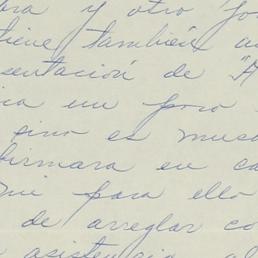 ara y otro
tiene también
sentación de "A
ica un poco
sino es
firmara en ca
para ello
de arreglar co
asistencia